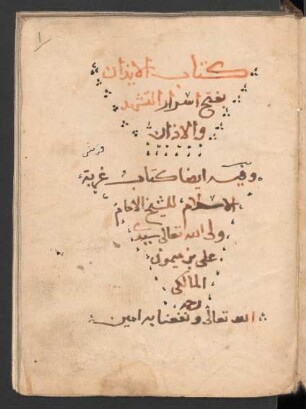 كتاب الايذان
بفتح اسرار التشهد
والاذان
وفيه ايضا كتاب غربة
الاسلام للشيخ الامام
ولي الله تعالى سيدي
علي بن ميمون
المالكي
رحمه
الله تعالى ونفعنا به امين